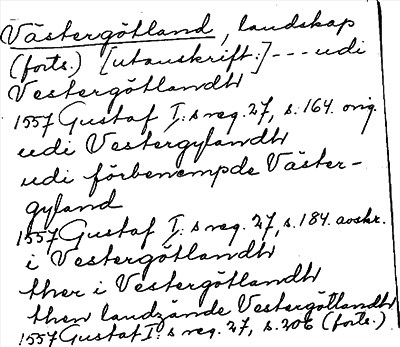 Västergötland, landskap
(forts.) [utanskrift:] --- udi
Vestergötlandh
1557 Gustaf I:s reg. 27, s. 164. orig.
udi Vestergylandh
udi förbenempde Väster-
gyland
1557 Gustaf I:s reg. 27, s. 184. avskr.
i Vestergötlandh
ther i Vestergötlandh
then landzände Vestergötlandh
1557 Gustaf I:s reg. 27, s. 206 (forts.)